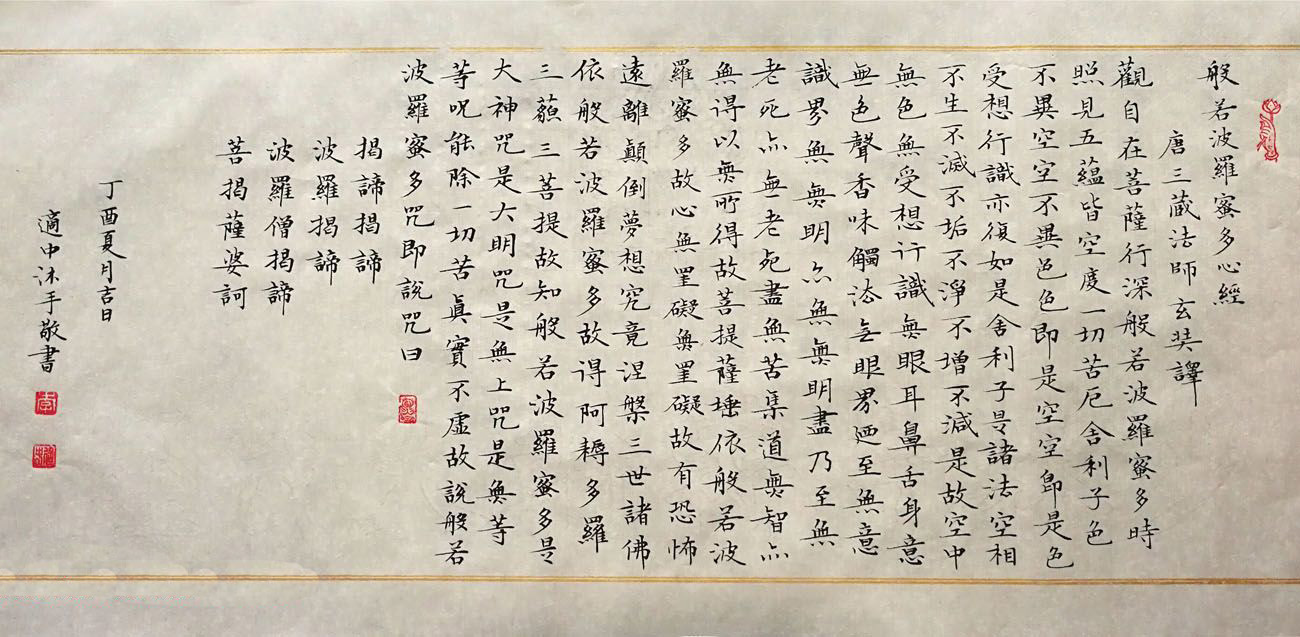 般若波羅蜜多心經
唐三藏法師玄奘譯
觀自在菩薩行深般若波羅蜜多時
照見五蘊皆空度一切苦厄舍利子色
不異空空不異色色即是空空即是色
受想行識亦復如是舍利子是諸法空相
不生不滅不垢不淨不增不減是故空中
無色無受想行識無眼耳鼻舌身意
無色聲香味觸法無眼界廼至無意
識界無無明亦無無明盡乃至無
老死亦無老死盡無苦集道無智亦
無得以無所得故菩提薩埵依般若波
羅蜜多故心無罣礙無罣礙故有恐怖
遠離顛倒夢想究竟涅槃三世諸佛
依般若波羅蜜多故得阿耨多羅
三藐三菩提故知般若波羅蜜多是
大神咒是大明咒是無上咒是無等
等呪能除一切苦眞實不虛故說般若
波羅蜜多咒即說咒曰
揭諦揭諦
波羅揭諦
波羅僧揭諦
菩揭薩婆訶
丁酉夏月吉日
適中沐手敬書